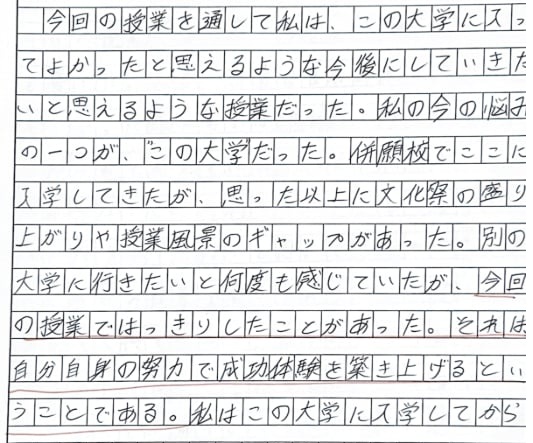 今回の授業を通して私は、この大学に入っ
てよかったと思えるような今後にしていきた
いと思えるような授業だった。私の今の悩み
の一つが、“この大学”だった。併願校でここに
入学してきたが、思った以上に文化祭の盛り
上がりや授業風景のギャップがあった。別の
大学に行きたいと何度も感じていたが、今回
の授業ではっきりしたことがあった。それは
自分自身の努力で成功体験を築き上げるとい
うことである。私はこの大学に入学してから